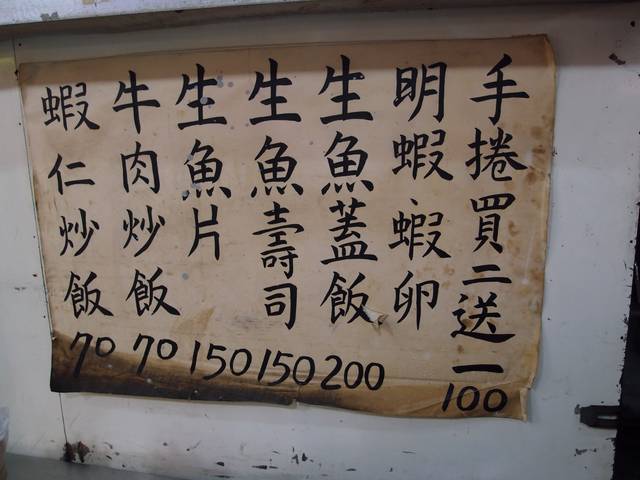 手捲買二送一 100
明蝦、蝦卵
生魚蓋飯 200
生魚壽司 150
生魚片 150
牛肉炒飯 70
蝦仁炒飯 70